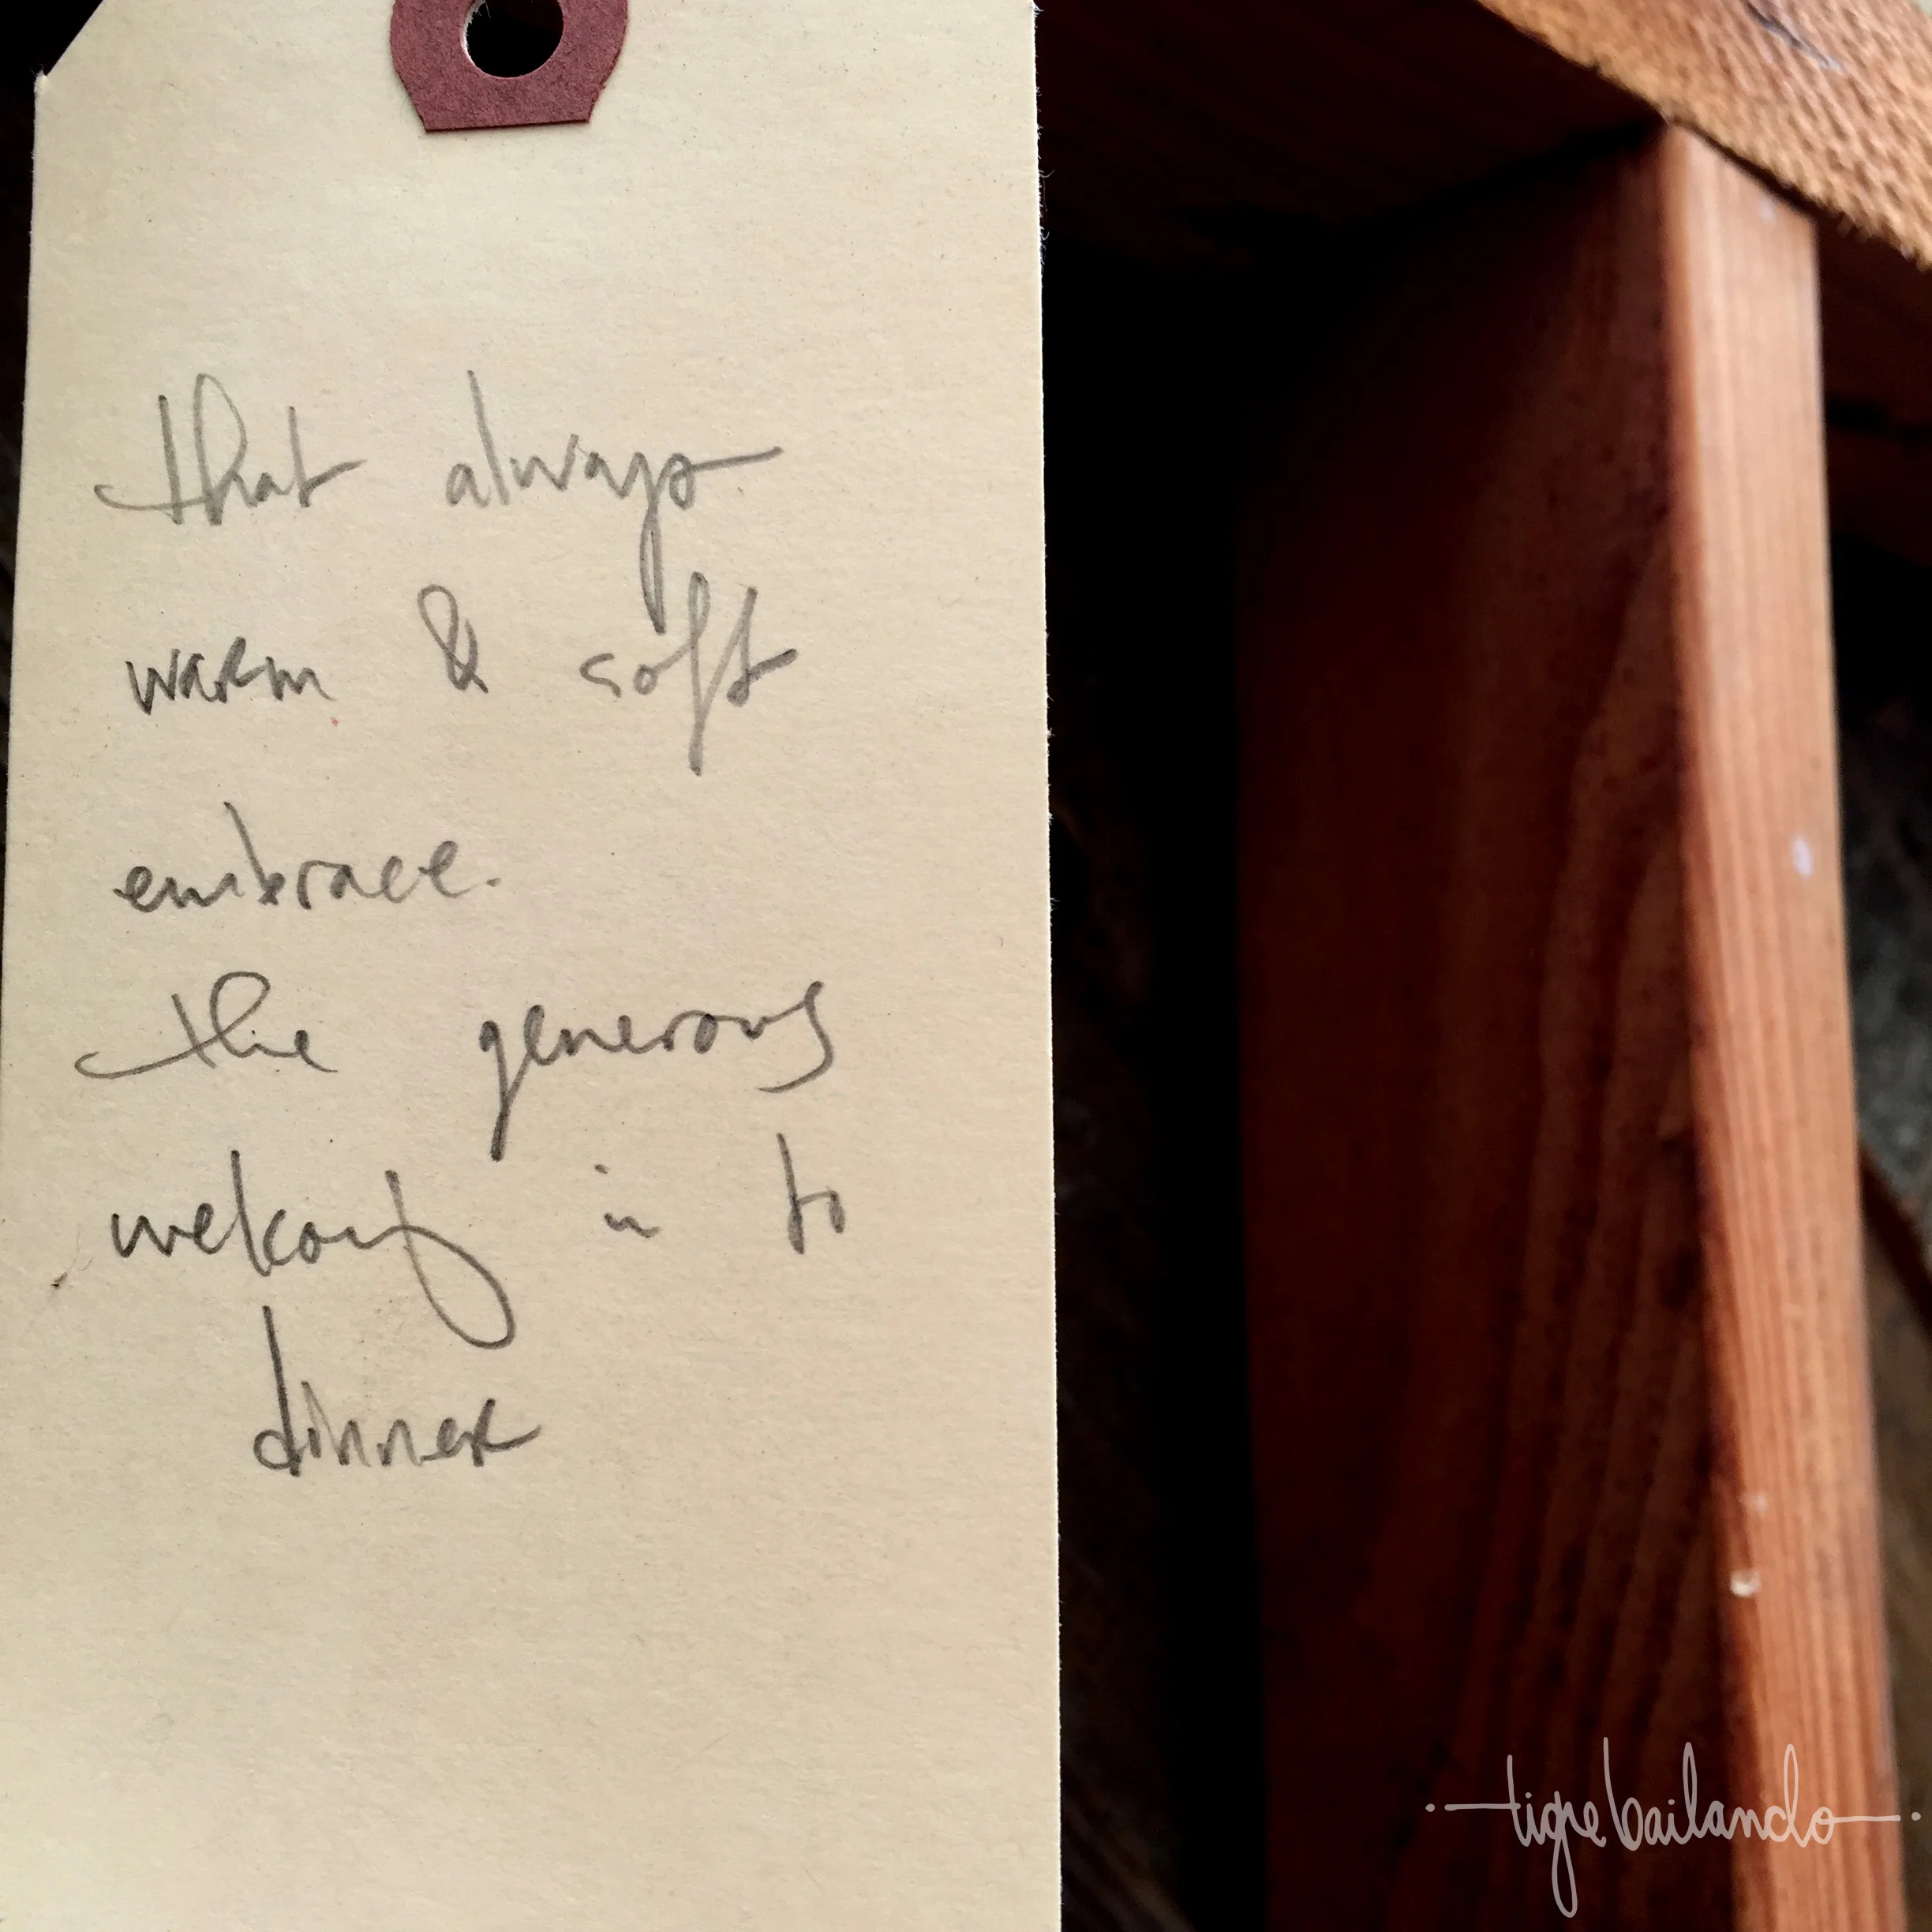 that always
warm & soft
embrace.
the generous
welcoming in to
dinner
tigre bailando